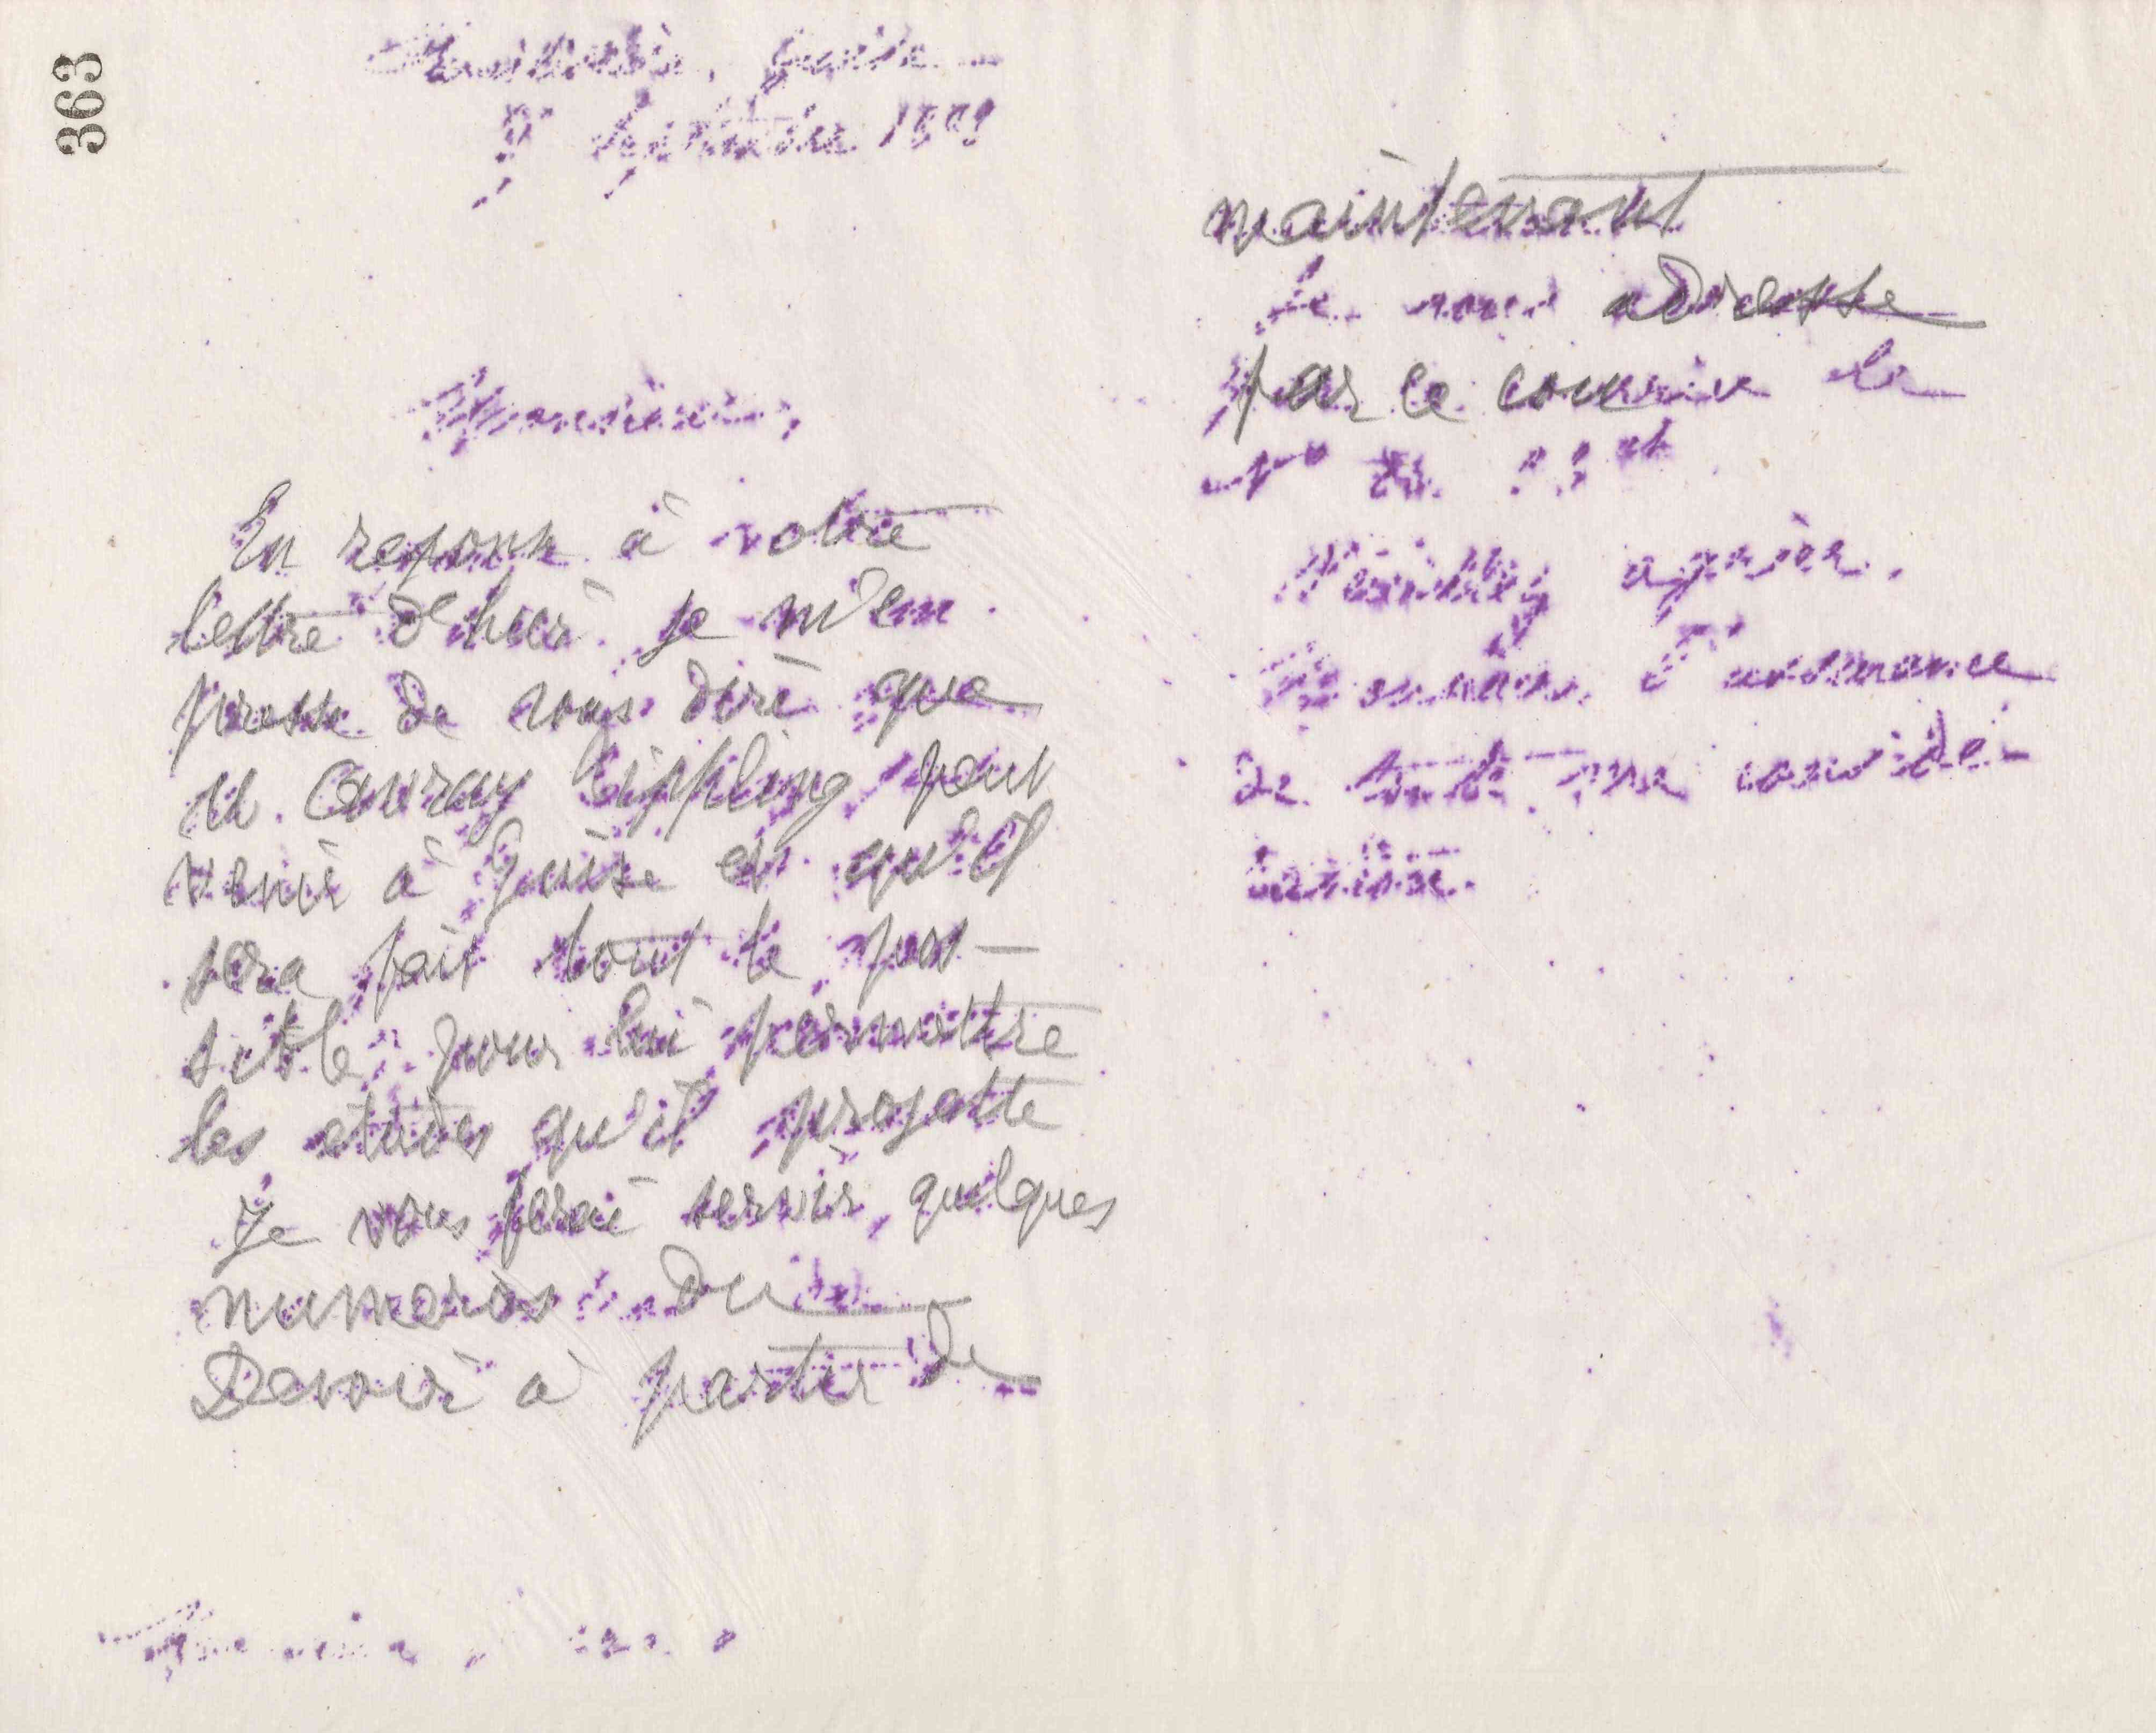 363
Familistère, Guise
7 Septembre 1889
Monsieur,
En reponse à votre
lettre d'hier je m'em
presse de vous dire que
M. Conray Gippling peut
venir à Guise et qu'il
sera fait tout le pos-
sible pour lui permettre
les etudes qu'il projette
Je vous ferai servir quelques
numeros du
Devoir à partir de
maintenant
Je vous adresse
par ce courrier le
n° du
Veuillez agréer,
Monsieur, l'assurance
de toute ma considé-
ration.